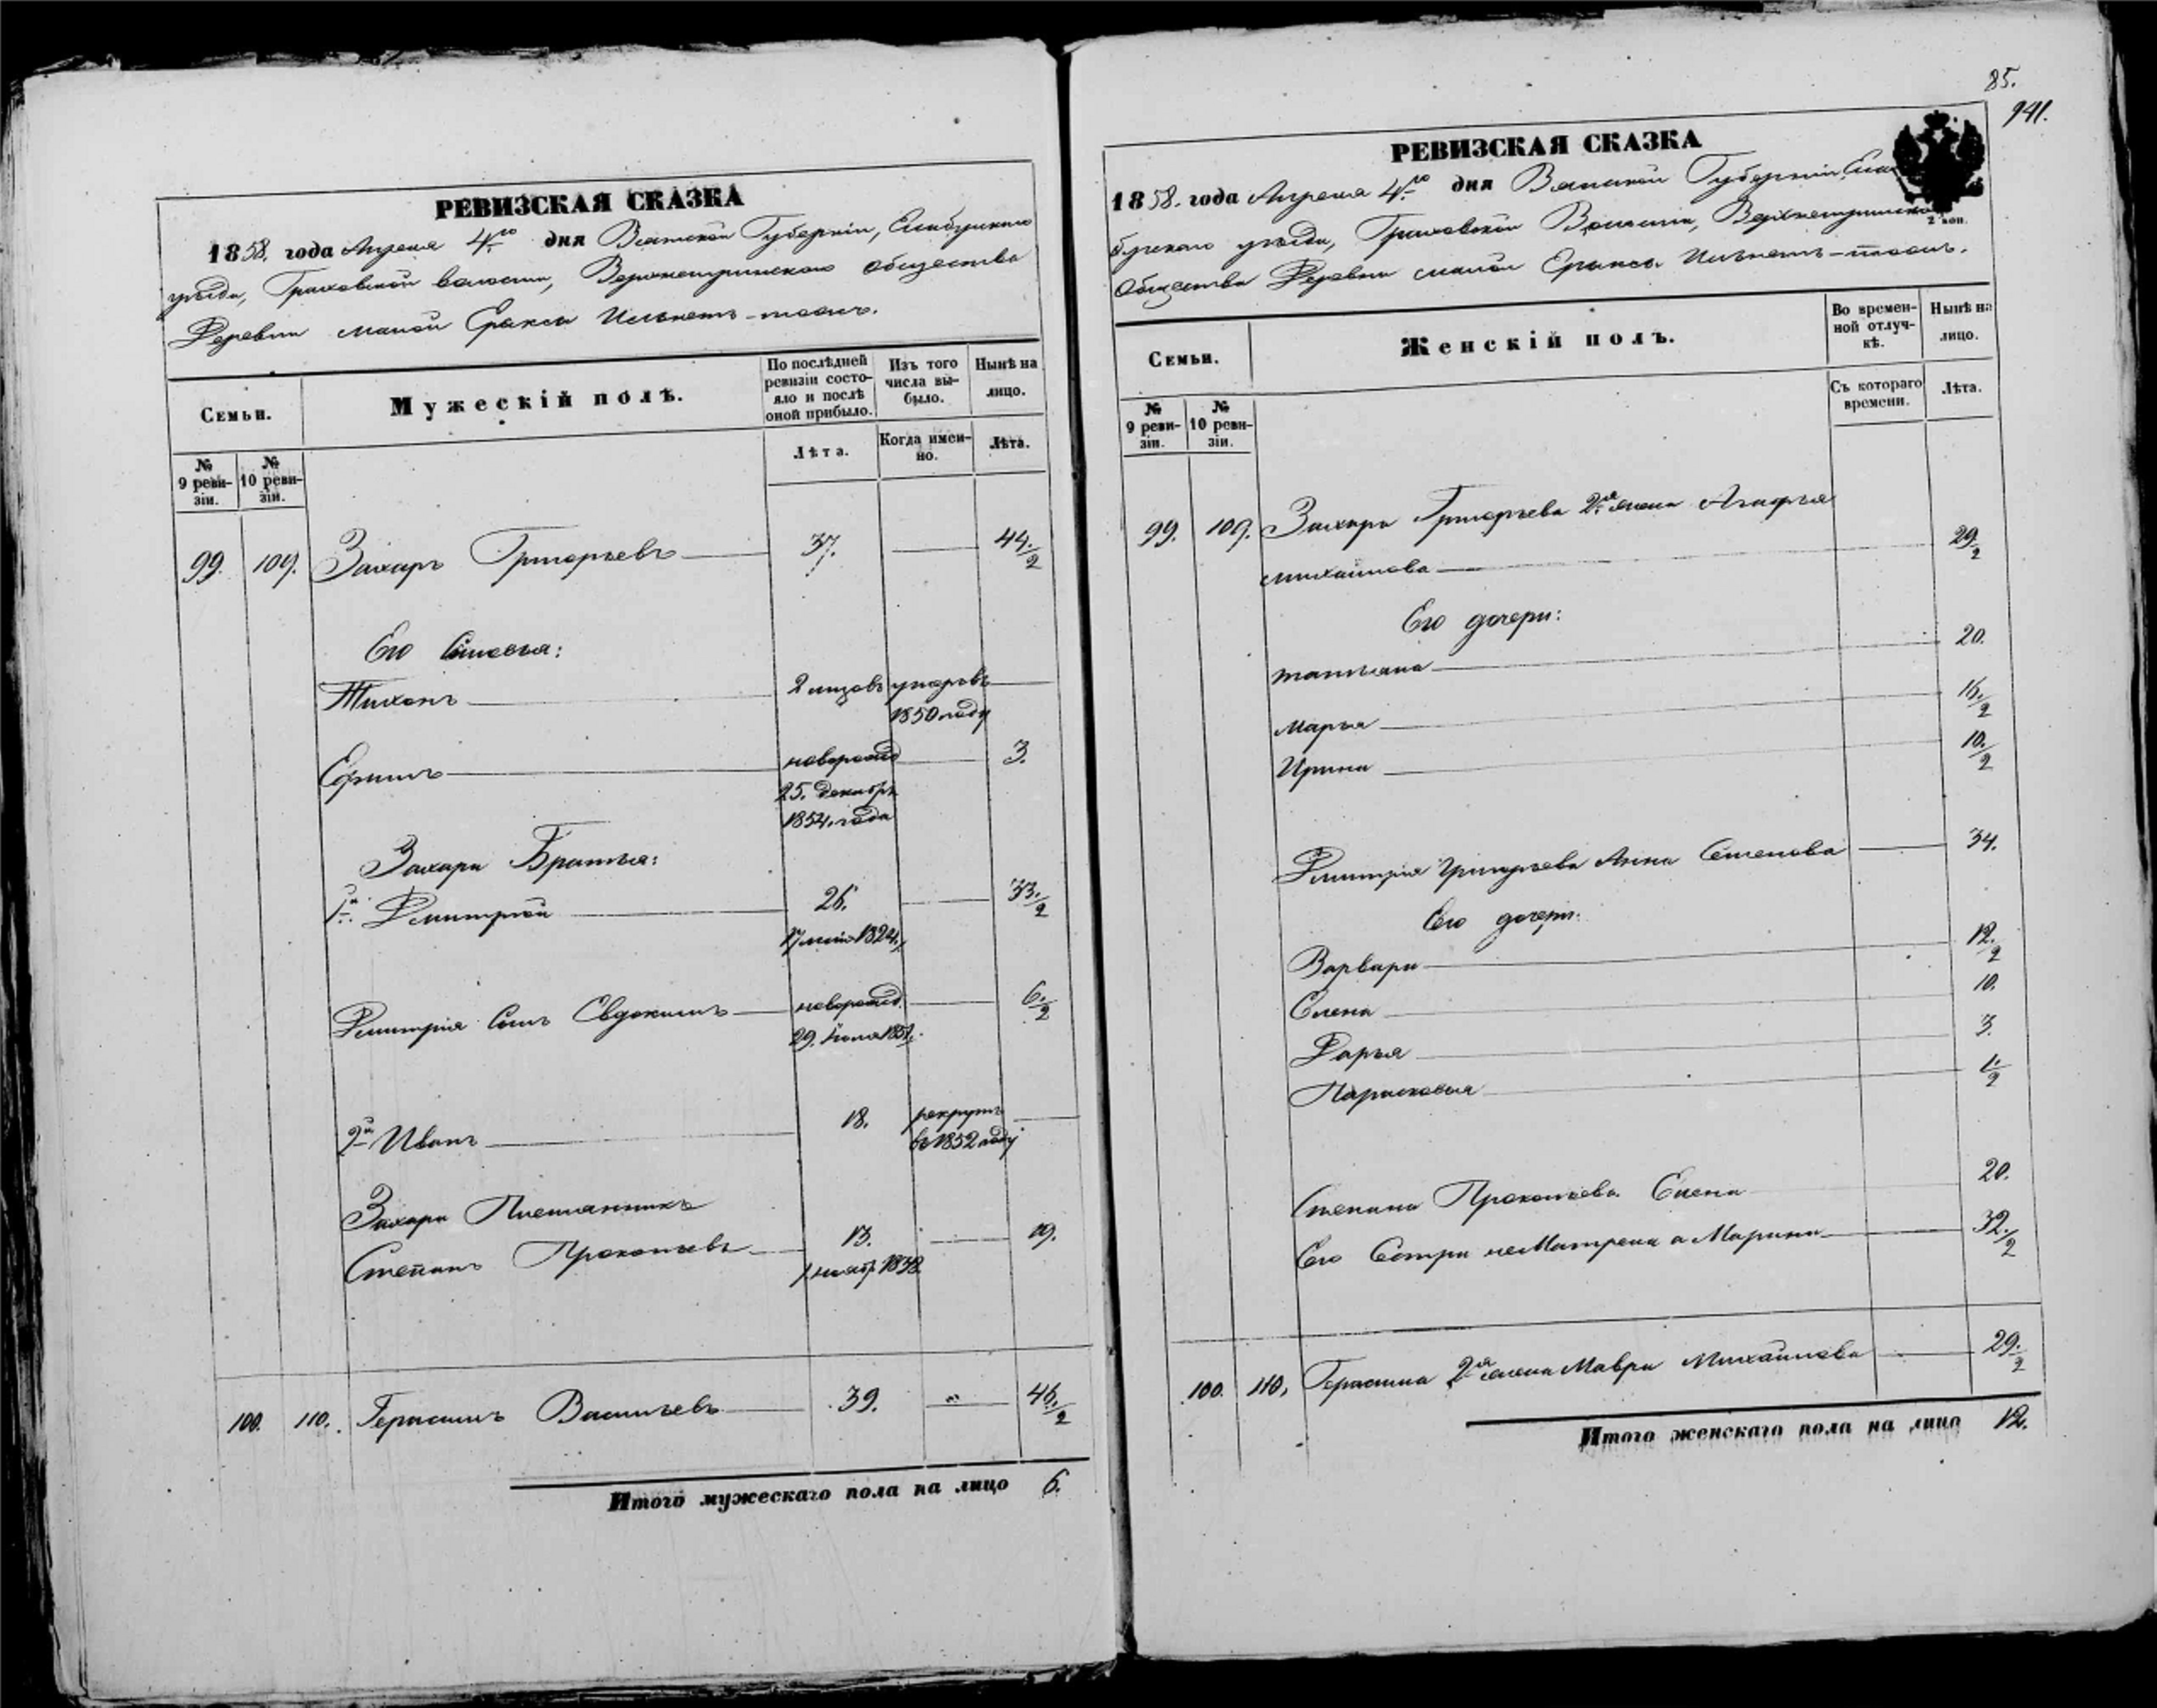 РЕВИЗСКАЯ СКАЗКА
1858. года Апреля 4го дня Вятской Губерніи, Елабужскаго
уѣзда, Граховской волости, Верхнетрымскаго общества
Деревни малой Ерыксы
Семьи.
Мужескій полъ.
По послѣдней ревизіи состояло и послѣ оной прибыло.
Изъ того числа выбыло.
Нынѣ на лицо.
Лѣта.
Когда именно.
Лѣта.
№ 9 ревизіи.
№ 10 ревизіи.
99. 109. Захаръ Григорьевъ 37. 44 1/2
Его Сыновья:
Тихонъ умеръ въ
1850 году
Ефимъ новорожд 3.
25. декабря
1854. года
Захара Братья:
1й. Дмитрій 26. 33 1/2
17 мая 1824.
Дмитрія Сынъ Евдокимъ новорожд. 6 1/2
29.
2й Иванъ 18. рекрутъ
въ 1852 году
Захара Племянникъ
Степанъ Прокопьевъ 13. 19.
1838
100. 110. Герасимъ Васильевъ 39. " 46 1/2
Итого мужескаго пола на лицо 6.
85.
941.
РЕВИЗСКАЯ СКАЗКА
1858. года Апреля 4го дня Вятской Губерніи Ела
бужскаго уѣзда, Граховской Волости,
2 коп.
Общества Деревни малой Ерыксы
Семьи.
Женскій полъ.
Во временной отлучкѣ.
Нынѣ на лицо.
Съ котораго времени.
Лѣта.
№ 9 ревизіи.
№ 10 ревизіи.
99. 109. Захара Григорьева 2я жена Агафья
Михайлова 29 1/2
Его дочери:
Татьяна 20.
Марья 16 1/2
Ирина 10 1/2
Дмитрія Григорьева Анна Семенова 34.
Его дочери:
Варвара 12 1/2
Елена 10.
Дарья 3.
Парасковья 1 1/2
Степана Прокопьева Елена 20.
Его Сестра не Матрена а Марина 32 1/2
100. 110. Герасима 2я жена Мавра Михайлова 29 1/2
Итого женскаго пола на лицо 12.